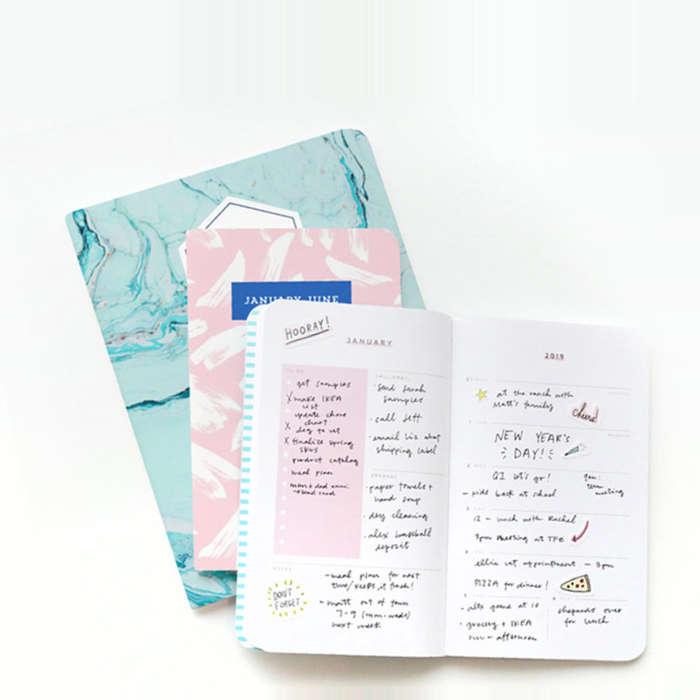 JANUARY-JUNE
HOORAY!
JANUARY
get samples
X make IKEA
list
update chore
chart
X dog to vet
X finalize spring
SKUs
product catalog
meal plan
send sarah
samples
call Jeff
email
what
shipping label
paper towels +
hand soap
dry cleaning
alex baseball
deposit
NOTES
DON'T
FORGET
- meal plan for next
time / keep it fresh!
- matt out of town
7-9 (mon-weds)
next week
2019
at the ranch with
Matt's family
cheers!
NEW YEAR'S
DAY!
Q1 let's go!
- pick back at school
12 - lunch with Rachel
3pm meeting at TFC
ellie vet appointment - 3pm
PIZZA for dinner!
- grocery + IKEA
run - afternoon
shepards over
for lunch